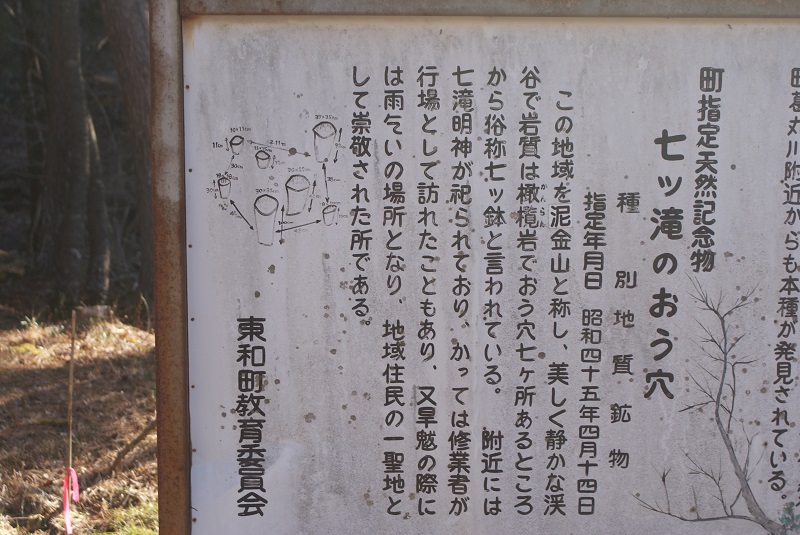 田倉丸川附近からも本種が発見されている。
町指定天然記念物
七ツ滝のおう穴
種別 地質鉱物
指定年月日 昭和四十五年四月十四日
この地域を泥金山と称し、美しく静かな渓
谷で岩質は橄欖岩でおう穴七ヶ所あるところ
かんらん
から俗称七ッ鉢と言われている。 附近には
七滝明神が祀られており、かっては修業者が
行場として訪れたこともあり、又旱魃の際に
は雨乞いの場所となり、地域住民の一聖地と
して崇敬された所である。
東和町教育委員会